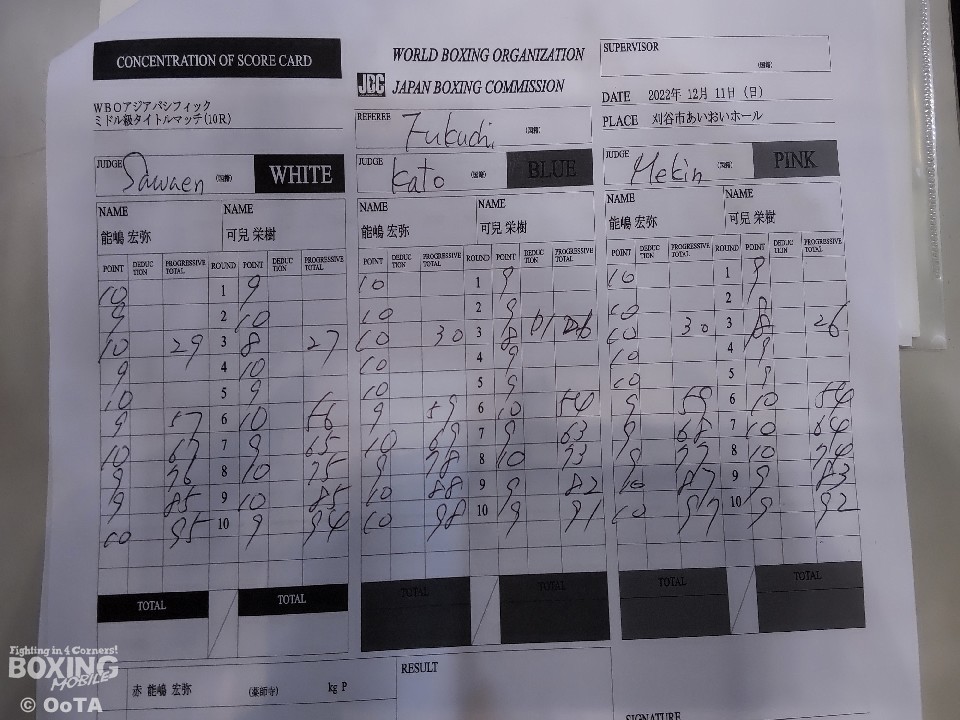 CONCENTRATION OF SCORE CARD
WORLD BOXING ORGANIZATION
JBC JAPAN BOXING COMMISSION
SUPERVISOR
(国籍)
WBOアジアパシフィック
ミドル級タイトルマッチ(10R)
DATE 2022年 12月 11日 (日)
REFEREE Fukuchi (国籍)
PLACE 刈谷市あいおいホール
JUDGE Sawaen (国籍) WHITE
JUDGE Kato (国籍) BLUE
JUDGE Mekin (国籍) PINK
NAME NAME NAME NAME NAME NAME
能嶋 宏弥 可兒 栄樹 能嶋 宏弥 可兒 栄樹 能嶋 宏弥 可兒 栄樹
POINT DEDUCTION PROGRESSIVE TOTAL ROUND POINT DEDUCTION PROGRESSIVE TOTAL POINT DEDUCTION PROGRESSIVE TOTAL ROUND POINT DEDUCTION PROGRESSIVE TOTAL POINT DEDUCTION PROGRESSIVE TOTAL ROUND POINT DEDUCTION PROGRESSIVE TOTAL
10 1 9 10 1 9 10 1 9
9 2 10 10 2 9 10 2 9
10 29 3 8 27 10 30 3 8 26 10 30 3 8 26
9 4 10 10 4 9 10 4 9
10 5 9 10 5 9 10 5 9
9 57 6 10 56 9 59 6 10 54 9 59 6 10 54
10 67 7 9 65 10 69 7 9 63 9 68 7 10 64
9 76 8 10 75 9 78 8 10 73 9 77 8 10 74
9 85 9 10 85 10 88 9 9 82 10 87 9 9 83
10 95 10 9 94 10 98 10 9 91 10 97 10 9 92
TOTAL TOTAL TOTAL TOTAL TOTAL TOTAL
RESULT
赤 能嶋 宏弥 (薬師寺) kg P
SIGNATURE
Fighting in 4 Corners!
BOXING
MOBILE
© OoTA